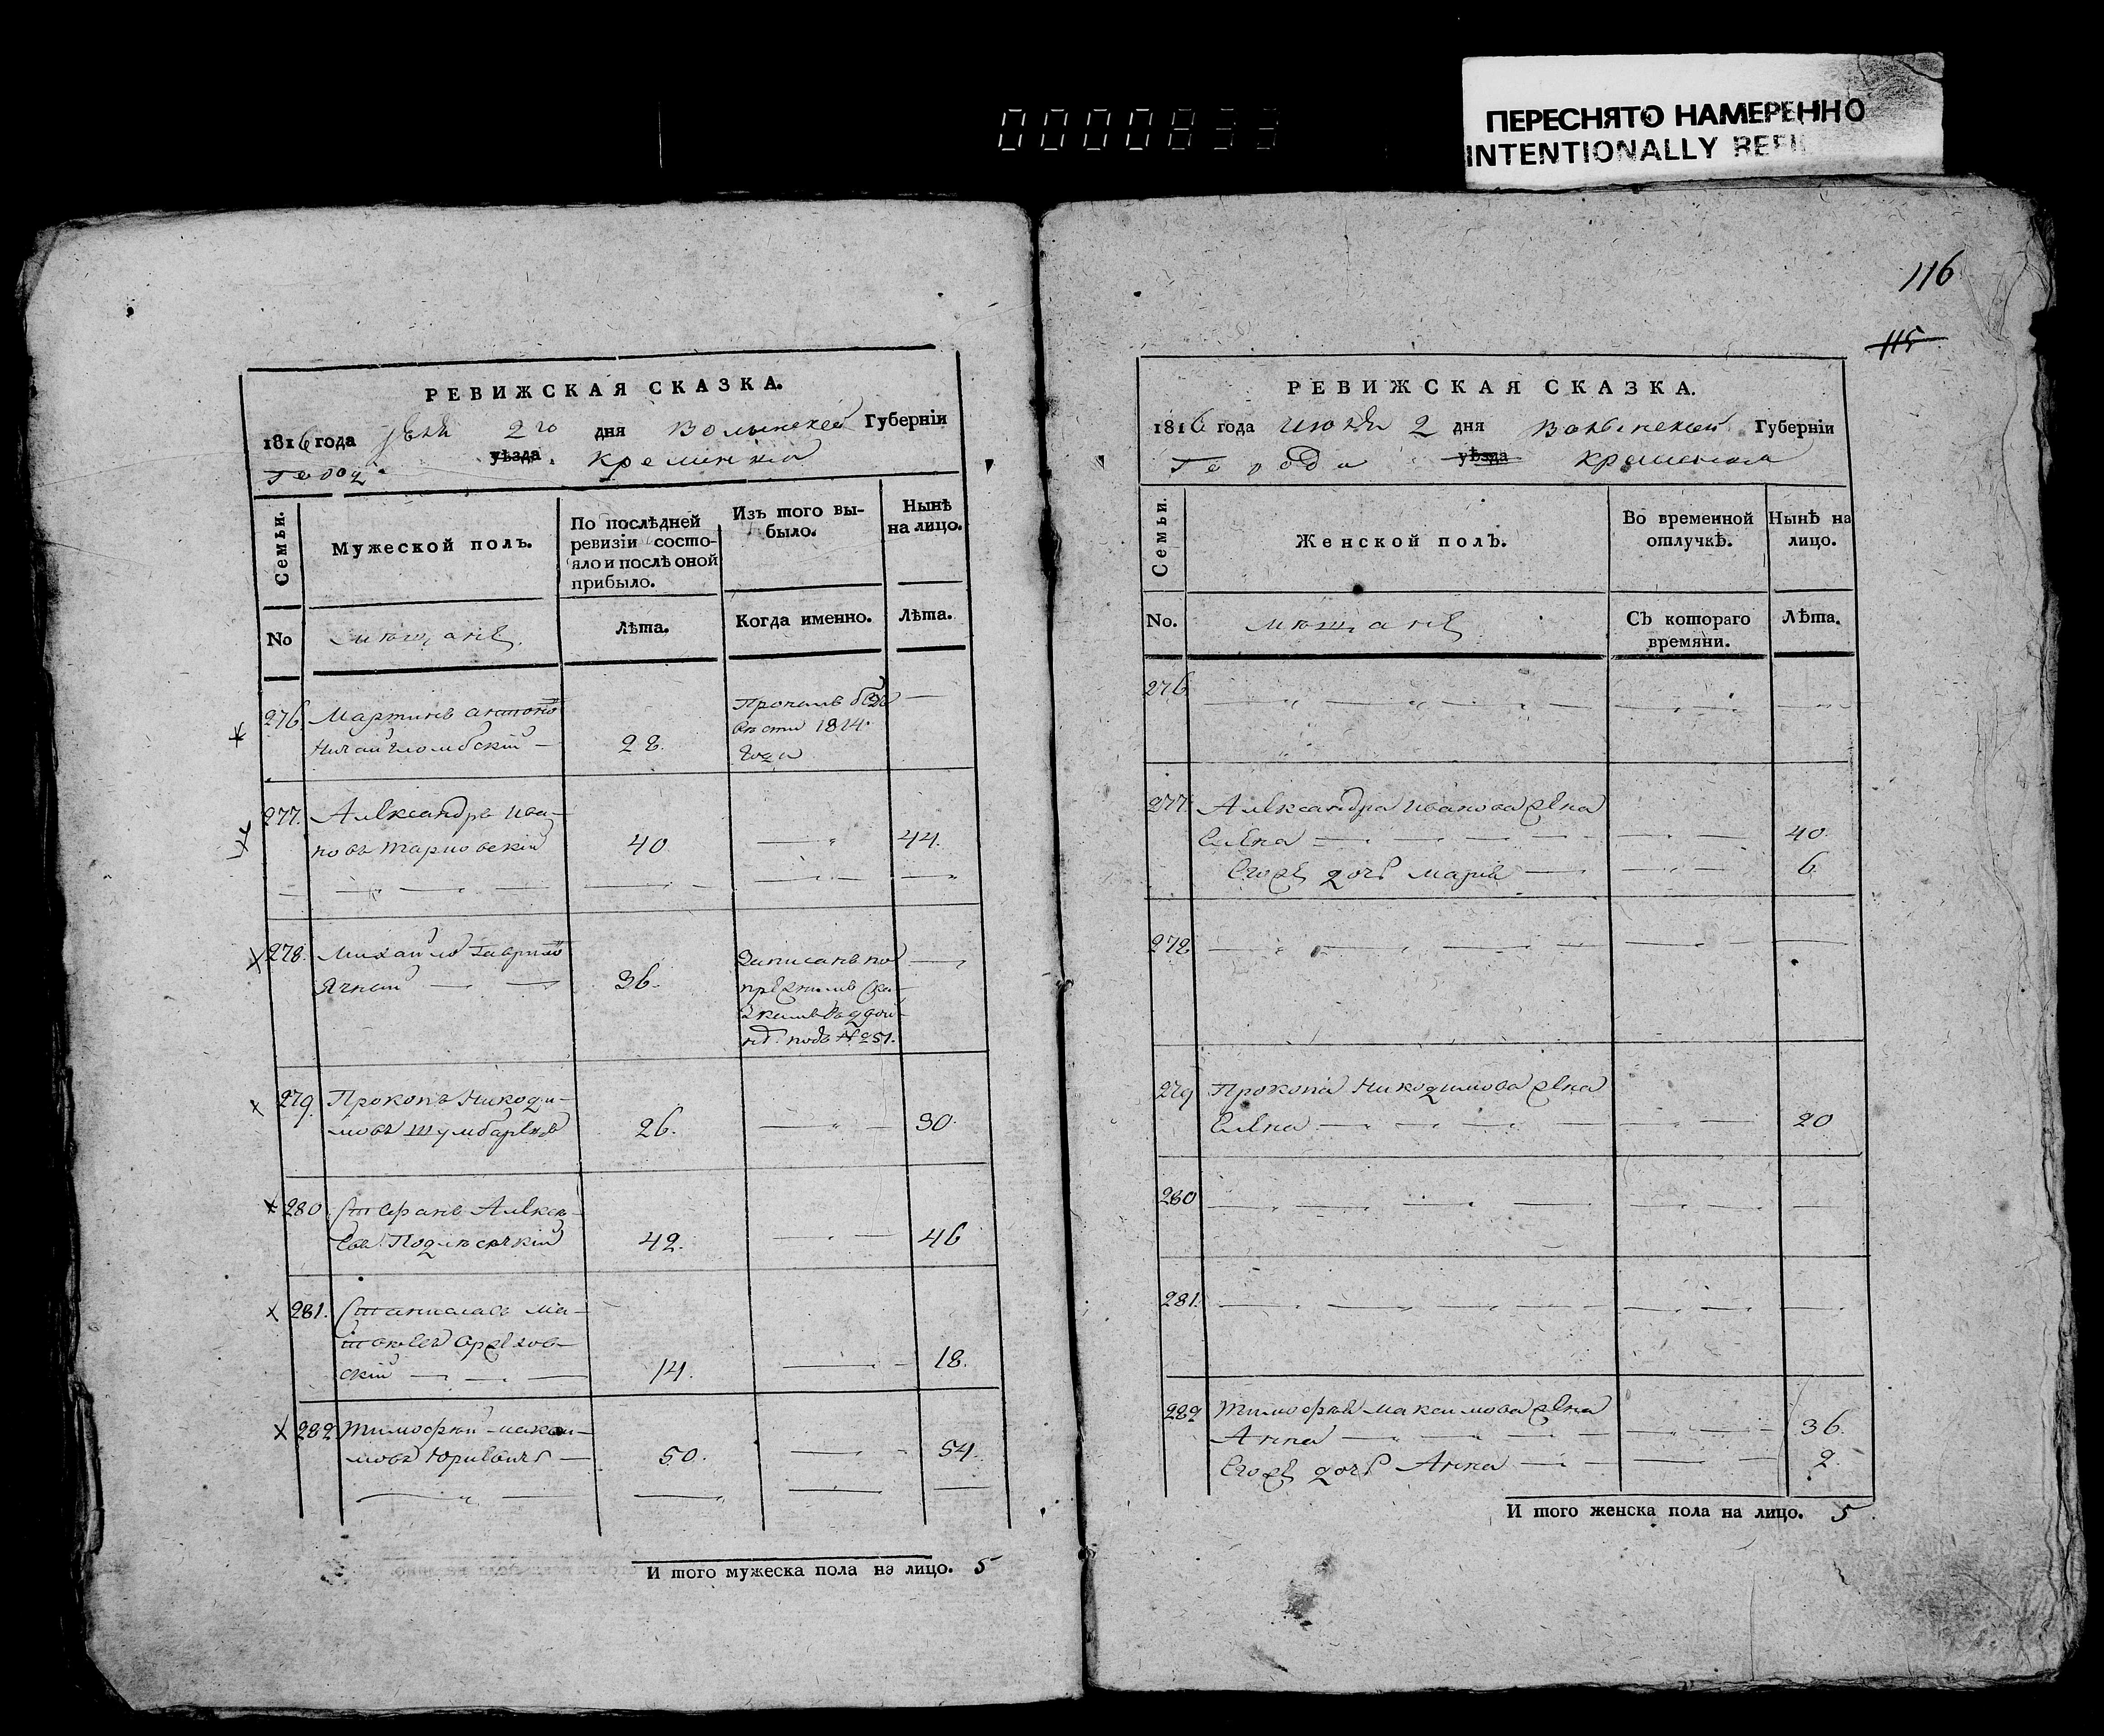 0000833
ПЕРЕСНЯТО НАМЕРЕННО
INTENTIONALLY REFI
116
115
РЕВИЖСКАЯ СКАЗКА.
1816 года Іюня 2го дня Волынской Губерніи
Города уѣзда Кременца
Семьи. Мужеской полъ. По послѣдней ревизіи состояло и послѣ оной прибыло. Изъ того выбыло. Нынѣ на лицо.
No мѣщане Лѣта. Когда именно. Лѣта.
276. Мартинъ Антоно Пропалъ безъ
28. вѣсти 1814.
года
277. Александръ Ива-
новъ Тарновскій 40 44.
278. Михайло Гаврило Записанъ по
36. 
подъ № 251.
279. Прокопъ Никоди-
мовъ 26. 30.
280 Стефанъ Алексѣ-
евъ Подлѣсецкій 42. 46
281. Станиславъ Ма-
скій 14. 18.
282 Тимофѣй Макси-
мовъ Юркевичъ 50. 54.
И того мужеска пола на лицо. 5
РЕВИЖСКАЯ СКАЗКА.
1816 года Июня 2 дня Волынской Губерніи
Города уѣзда Кременца
Семьи. Женской полъ. Во временной отлучкѣ. Нынѣ на лицо.
No. мѣщане Съ котораго времяни. Лѣта.
276.
277. Александра Иванова жена
Елена 40.
Егожъ дочь Марія 6.
278
279 Прокопа Никодимова жена
Елена 20
280
281.
282 Тимофѣя Максимова жена
Анна 36.
Егожъ дочь Анна 2.
И того женска пола на лицо. 5